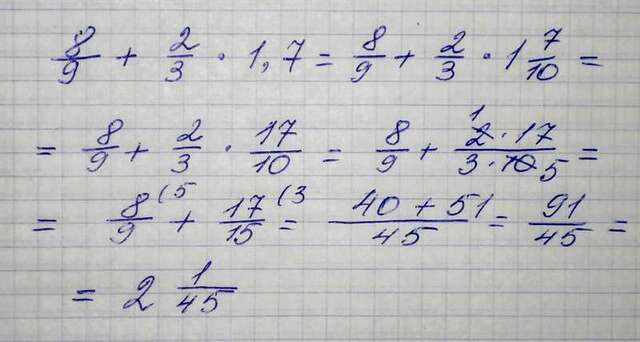 8/9 + 2/3 · 1,7 = 8/9 + 2/3 · 1 7/10 =
= 8/9 + 2/3 · 17/10 = 8/9 + 1 2·17/3·10 5 =
= 8/9 (5 + 17/15 (3 = 40+51/45 = 91/45 =
= 2 1/45